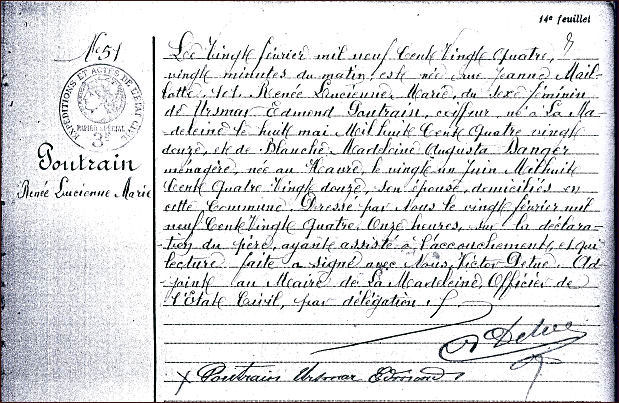 14e feuillet
No 51
EXPÉDITIONS ET ACTES DE L'ÉTAT CIVIL
PAPIER SPÉCIAL
Poutrain
Renée Lucienne Marie
Le Vingt février mil neuf Cent Vingt quatre,
vingt minutes du matin, est née rue Jeanne Mail-
lotte, Renée Lucienne Marie, du sexe féminin
de Ursmar Edmond Poutrain, coiffeur né à La Ma-
deleine le huit mai Mil huit Cent Quatre vingt
douze, et de Blanche Madeleine Augusta Danger
ménagère, née au Havre, le vingt un Juin Mil huit
Cent Quatre Vingt douze, son épouse, domiciliés en
cette Commune. Dressé par Nous le vingt février mil
neuf Cent Vingt Quatre, Onze heures, sur la déclara-
tion du père, ayant assisté à l'accouchement, et qui
lecture faite a signé avec Nous, Victor Ad-
joint au Maire de La Madeleine, Officier de
l'Etat Civil, par délégation./
x Poutrain Ursmar Edmond